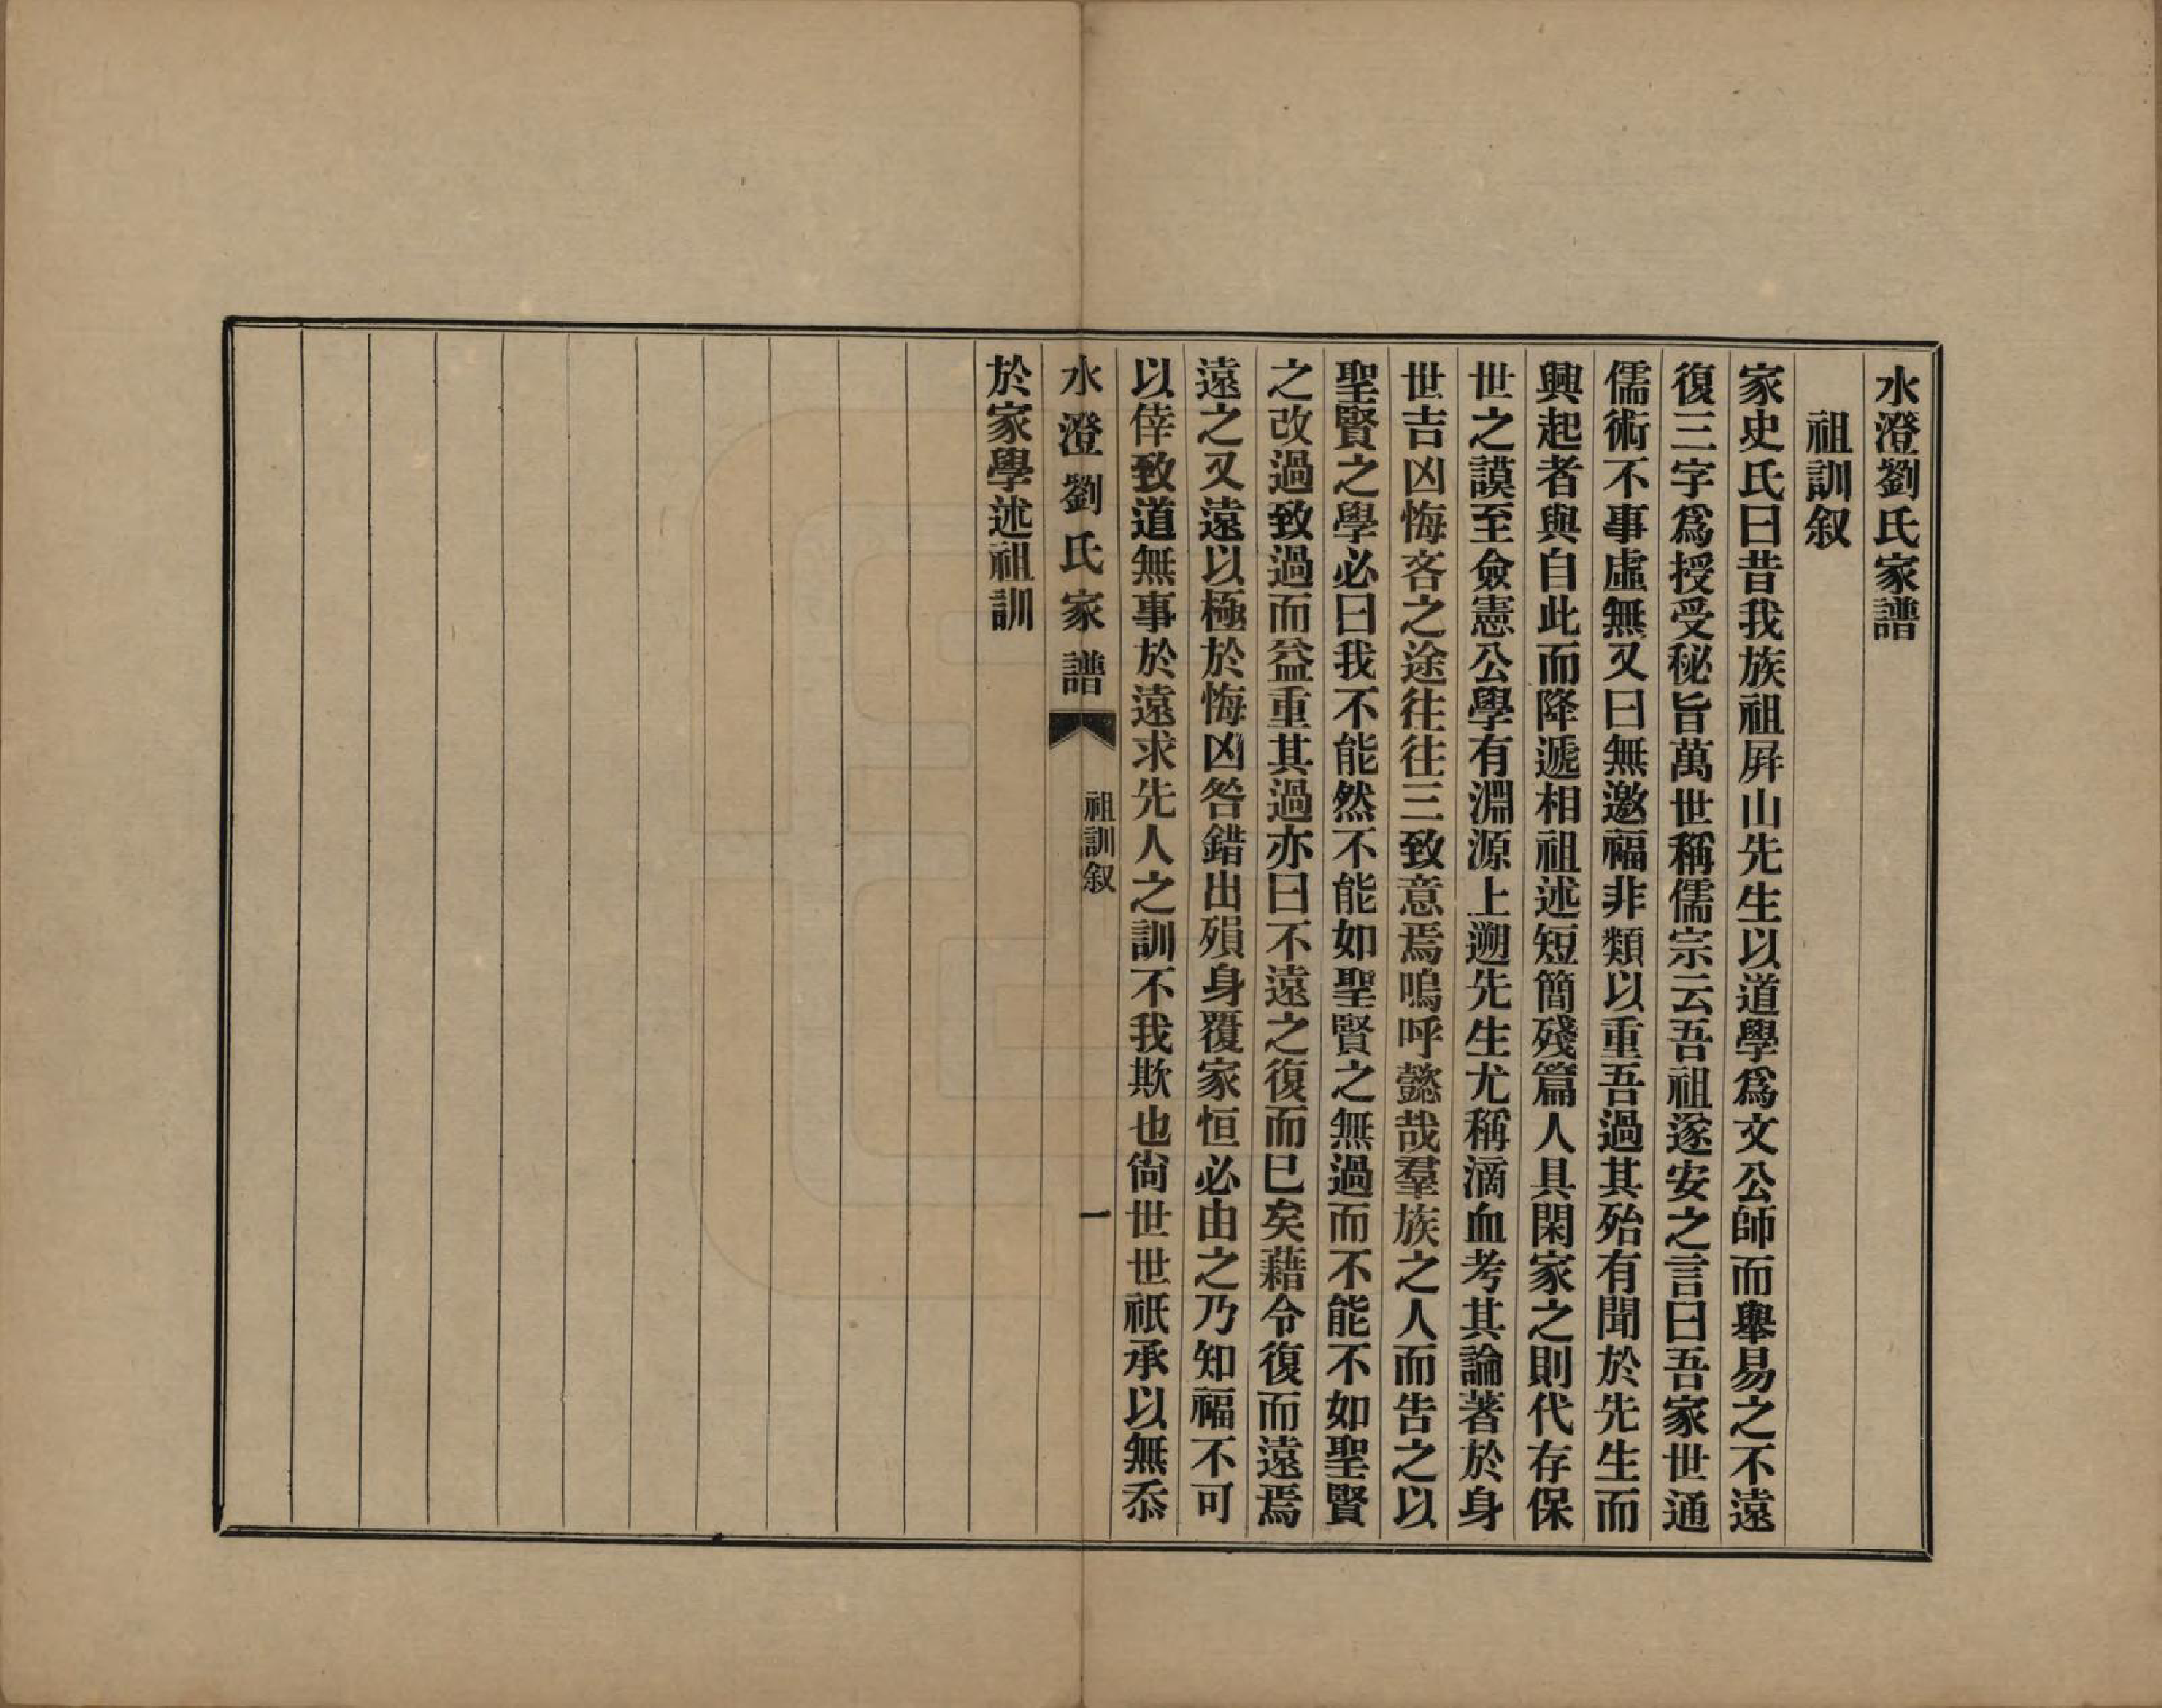 水澄劉氏家譜
祖訓叙
家史氏曰昔我族祖屛山先生以道學爲文公師而舉易之不遠
復三字爲授受秘旨萬世稱儒宗云吾祖遂安之言曰吾家世通
儒術不事虛無又曰無邀福非類以重吾過其殆有聞於先生而
興起者與自此而降遞相祖述短簡殘篇人具閑家之則代存保
世之謨至僉憲公學有淵源上遡先生尤稱滴血考其論著於身
世吉凶悔吝之途往往三致意焉嗚呼懿哉羣族之人而告之以
聖賢之學必曰我不能然不能如聖賢之無過而不能不如聖賢
之改過致過而益重其過亦曰不遠之復而已矣藉令復而遠焉
遠之又遠以極於悔凶咎錯出殞身覆家恒必由之乃知福不可
以倖致道無事於遠求先人之訓不我欺也尙世世祇承以無忝
水澄劉氏家譜
祖訓叙
一
於家學述祖訓